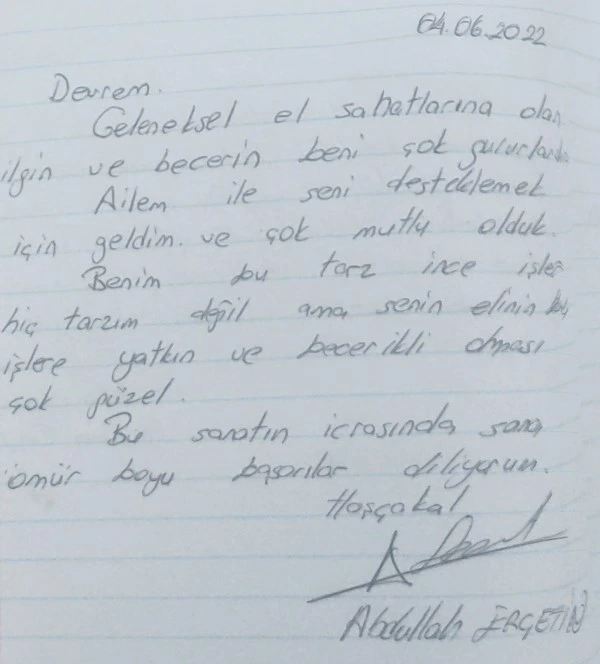 04.06.2022
Devrem.
Geleneksel el sanatlarına olan
ilgin ve becerin beni çok gururlandı
Ailem ile seni desteklemek
için geldim. ve çok mutlu olduk.
Benim bu tarz ince işler
hiç tarzım değil ama senin elinin bu
işlere yatkın ve becerikli olması
çok güzel.
Bu sanatın icrasında sana
ömür boyu başarılar diliyorum.
Hoşçakal
Abdullah ERÇETİN